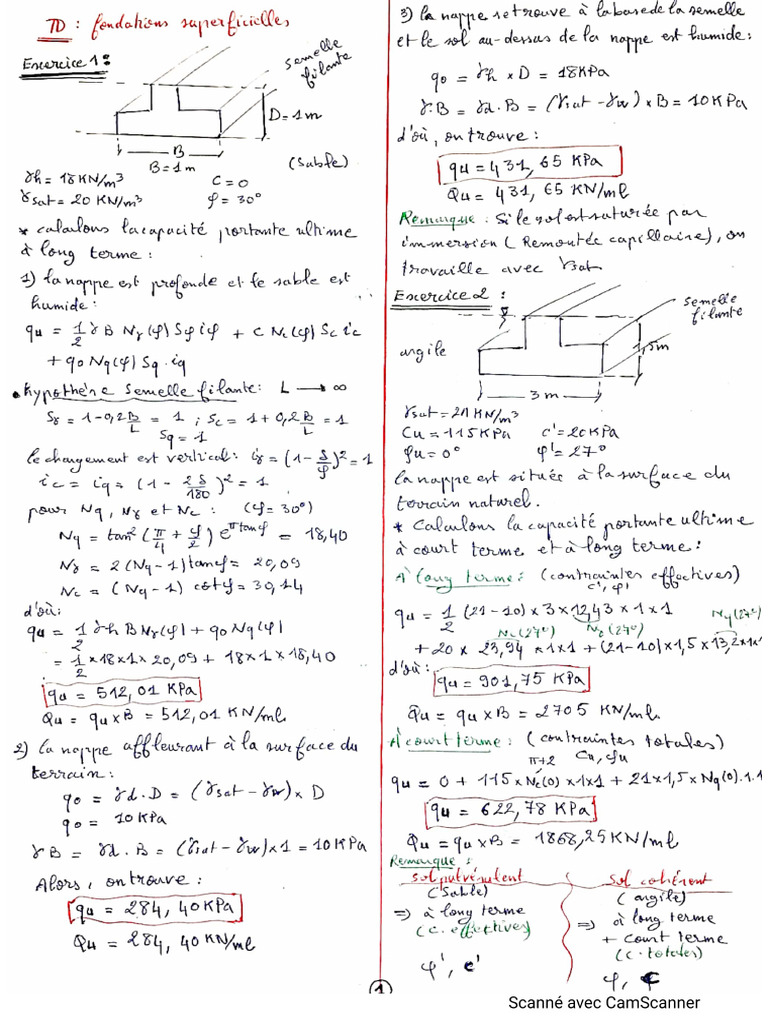 TD : fondations superficielles
Exercice 1:
Semelle
filante
D=1m
B
B=1m
(Sable)
γh = 18 KN/m³ C=0
γsat = 20 KN/m³ φ = 30°
* calculons la capacité portante ultime
à long terme :
1) la nappe est profonde et le sable est
humide :
qu = 1/2 γ B Nγ(φ) Sγ iγ + C Nc(φ) Sc ic
+ q0 Nq(φ) Sq . iq
• hypothèse semelle filante : L → ∞
Sγ = 1-0,2 B/L = 1 ; Sc = 1+0,2 B/L = 1
Sq = 1
le chargement est vertical : iγ = (1 - δ/φ)² = 1
ic = iq = (1 - 2δ/180)² = 1
pour Nq, Nγ et Nc : (φ=30°)
Nq = tan² (π/4 + φ/2) e^πtanφ = 18,40
Nγ = 2(Nq-1) tanφ = 20,09
Nc = (Nq-1) cotφ = 30,14
d'où :
qu = 1/2 γh B Nγ(φ) + q0 Nq(φ)
= 1/2 × 18 × 1 × 20,09 + 18 × 1 × 18,40
qu = 512,01 KPa
Qu = qu × B = 512,01 KN/ml
2) la nappe affleurant à la surface du
terrain :
q0 = γd . D = (γsat - γw) × D
q0 = 10 KPa
γB = γd . B = (γsat - γw) × 1 = 10 KPa
Alors, on trouve :
qu = 284,40 KPa
Qu = 284,40 KN/ml
3) la nappe se trouve à la base de la semelle
et le sol au-dessus de la nappe est humide :
q0 = γh × D = 18 KPa
γ.B = γd . B = (γsat - γw) × B = 10 KPa
d'où, on trouve :
qu = 431,65 KPa
Qu = 431,65 KN/ml
Remarque : Si le sol est saturée par
immersion (Remontée capillaire), on
travaille avec γsat
Exercice 2 :
Semelle
filante
argile
1,5m
3m
γsat = 21 KN/m³
Cu = 115 KPa c' = 20 KPa
φu = 0° φ' = 27°
la nappe est située à la surface du
terrain naturel.
* Calculons la capacité portante ultime
à court terme et à long terme :
À long terme : (contraintes effectives)
c', φ'
qu = 1/2 (21-10) × 3 × 12,43 × 1 × 1
Nc(27°) Nγ(27°) Nq(27°)
+ 20 × 23,94 × 1 × 1 + (21-10) × 1,5 × 13,2 × 1 × 1
d'où :
qu = 901,75 KPa
Qu = qu × B = 2705 KN/ml.
À court terme : (contraintes totales)
π+2 Cu, φu
qu = 0 + 115 × Nc(0) × 1×1 + 21 × 1,5 × Nq(0) . 1.1
qu = 622,78 KPa
Qu = qu × B = 1868,25 KN/ml
Remarque :
sol pulvérulent
(Sable)
⇒ à long terme
(c. effectives)
φ', c'
Sol cohérent
(argile)
⇒ à long terme
+ court terme
(c. totales)
φ, C
1
Scanné avec CamScanner